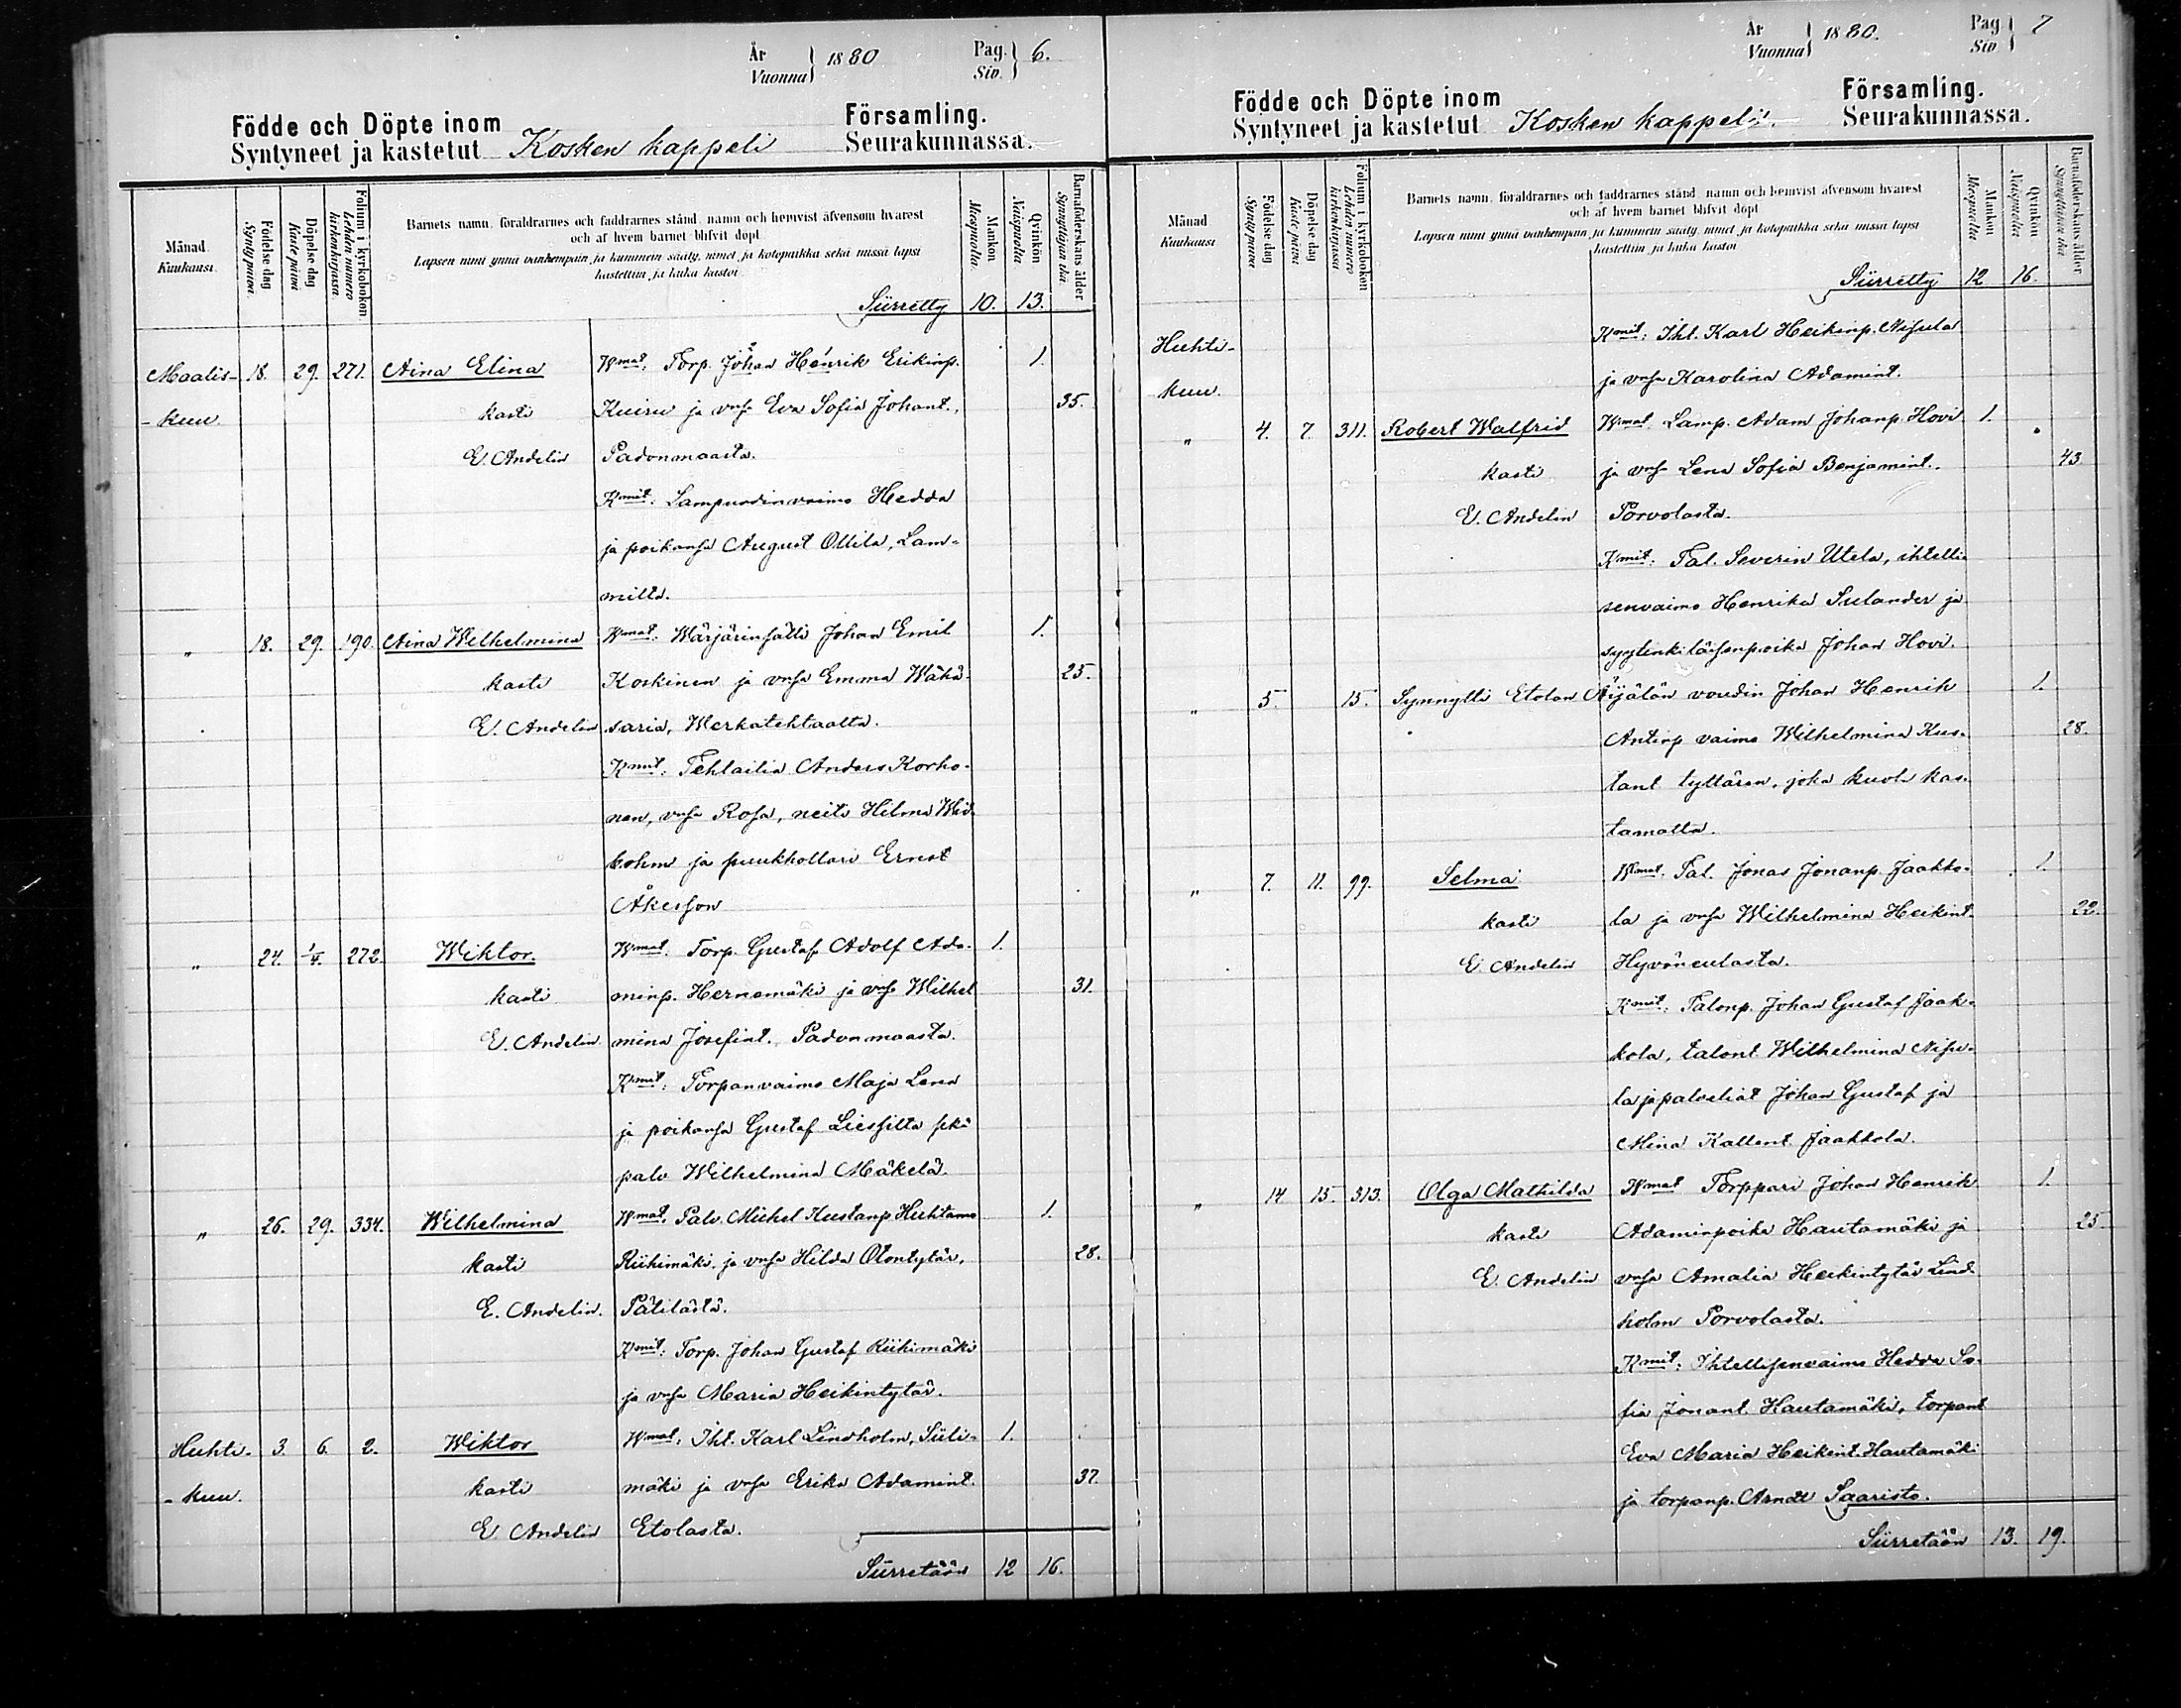 År
Vuonna
1880
Pag.
Siv.
6.
Födde och Döpte inom
Syntyneet ja kastetut
Kosken kappeli
Församling.
Seurakunnassa.
Månad.
Kuukausi.
Födelse dag
Synty päivä.
Döpelse dag
Kaste päivä
Folium i kyrkoboken.
Lehden numero kirkonkirjassa.
Barnets namn, föräldrarnes och faddrarnes stånd, namn och hemvist äfvensom hvarest
och af hvem barnet blifvit döpt
Lapsen nimi ynnä vanhempain ja kummein sääty, nimet ja kotopaikka sekä missä lapsi
kastettiin ja kuka kastoi
Mankön
Miespuolia.
Qvinkön
Naispuolia.
Barnaföderskans ålder
Synnyttäjän ikä.
Siirretty 10. 13.
Maalis- 18. 29. 271. Aina Elina Wmat. Torp. Johan Henrik Erikinp. 1.
-kuu. kasti Kuiru ja vmsa Eva Sofia Johant., 35.
E. Andelin Padonmaasta.
Kmit. Lampuodinvaimo Hedda
ja poikansa August Ollila, Lam-
milta.
" 18. 29. 190. Aina Wilhelmina Wmat. Wärjärinsälli Johan Emil 1.
kasti Koskinen ja vmsa Emma Wähä- 25.
E. Andelin saria, Werkatehtaalta.
Kmit: Tehtailia Anders Korho-
nen, vmsa Rosa, neito Hilma Wid-
bohm ja puukhollari Ernst
Åkesson
" 24. 1/4. 272. Wiktor. Wmat. Torp. Gustaf Adolf Ada- 1.
kasti minp. Hernemäki ja vmsa Wilhel 31.
E. Andelin. mina Josefint. Padonmaasta.
Kmit: Torpanvaimo Maja Lena
ja poikansa Gustaf Liessilta sekä
palv Wilhelmina Mäkelä.
" 26. 29. 334. Wilhelmina Wmat. Palv. Mickel Kustanp Huhtamo 1.
kasti Riihimäki. ja vmsa Hilda Otontytär, 28.
E. Andelin. Pätilästä.
Kmit: Torp. Johan Gustaf Riihimäki
ja vmsa Maria Heikintytär.
Huhti- 3. 6. 2. Wiktor Wmat. Iht. Karl Lindholm, Süli- 1.
-kuu. kasti mäki ja vmsa Erika Adamint. 37.
E. Andelin Etolasta.
Siirretään 12 16.
År
Vuonna
1880.
Pag.
Siv.
7
Födde och Döpte inom
Syntyneet ja kastetut
Kosken kappeli.
Församling.
Seurakunnassa.
Månad
Kuukausi
Födelse dag
Synty päivä
Döpelse dag
Kaste päivä
Folium i kyrkoboken
Lehden numero kirkonkirjassa
Barnets namn, föräldrarnes och faddrarnes stånd, namn och hemvist äfvensom hvarest
och af hvem barnet blifvit döpt
Lapsen nimi ynnä vanhempain ja kummein sääty, nimet ja kotopaikka sekä missä lapsi
kastettiin ja kuka kastoi
Mankön
Miespuolia
Qvinkön
Naispuolia
Barnaföderskans ålder
Synnyttäjän ikä
Siirretty 12 16.
Huhti- Kmit: Iht. Karl Heikinp. Nisula
kuu. ja vmsa Karolina Adamint.
" 4. 7. 311. Robert Walfrid Wmat. Lamp. Adam Johanp. Hovi 1.
kasti ja vmsa Lena Sofia Benjamint. 43
E. Andelin Porvolasta.
Kmit: Tal. Severin Utela, ihtelli-
senvaimo Henrika Sulander ja
syytinkiläisenpoika Johan Hovi.
" 5. 15. Synnytti Etolan Äijälän voudin Johan Henrik 1.
Antinp vaimo Wilhelmina Kus- 28.
tant tyttären, joka kuoli kas-
tamatta.
" 7. 11. 99. Selma Wmat. Tal. Jonas Jonanp. Jaakko- 1.
kasti la ja vmsa Wilhelmina Heikint. 22.
E. Andelin Hyvöneulasta.
Kmit: Talonp. Johan Gustaf Jaak-
kola, talont Wilhelmina Nisu-
la ja palveliat Johan Gustaf ja
Mina Kallent Jaakkola.
" 14 15. 313. Olga Mathilda Wmat Torppari Johan Henrik 1.
kasti Adaminpoika Hautamäki ja 25.
E. Andelin vmsa Amalia Heikintytär Lind-
holm Porvolasta.
Kmit: Ihtellisenvaimo Hedda So-
fia Jonant. Hautamäki, torpant
Eva Maria Heikint. Hautamäki
ja torpanp. Arndt Saaristo.
Siirretään 13. 19.